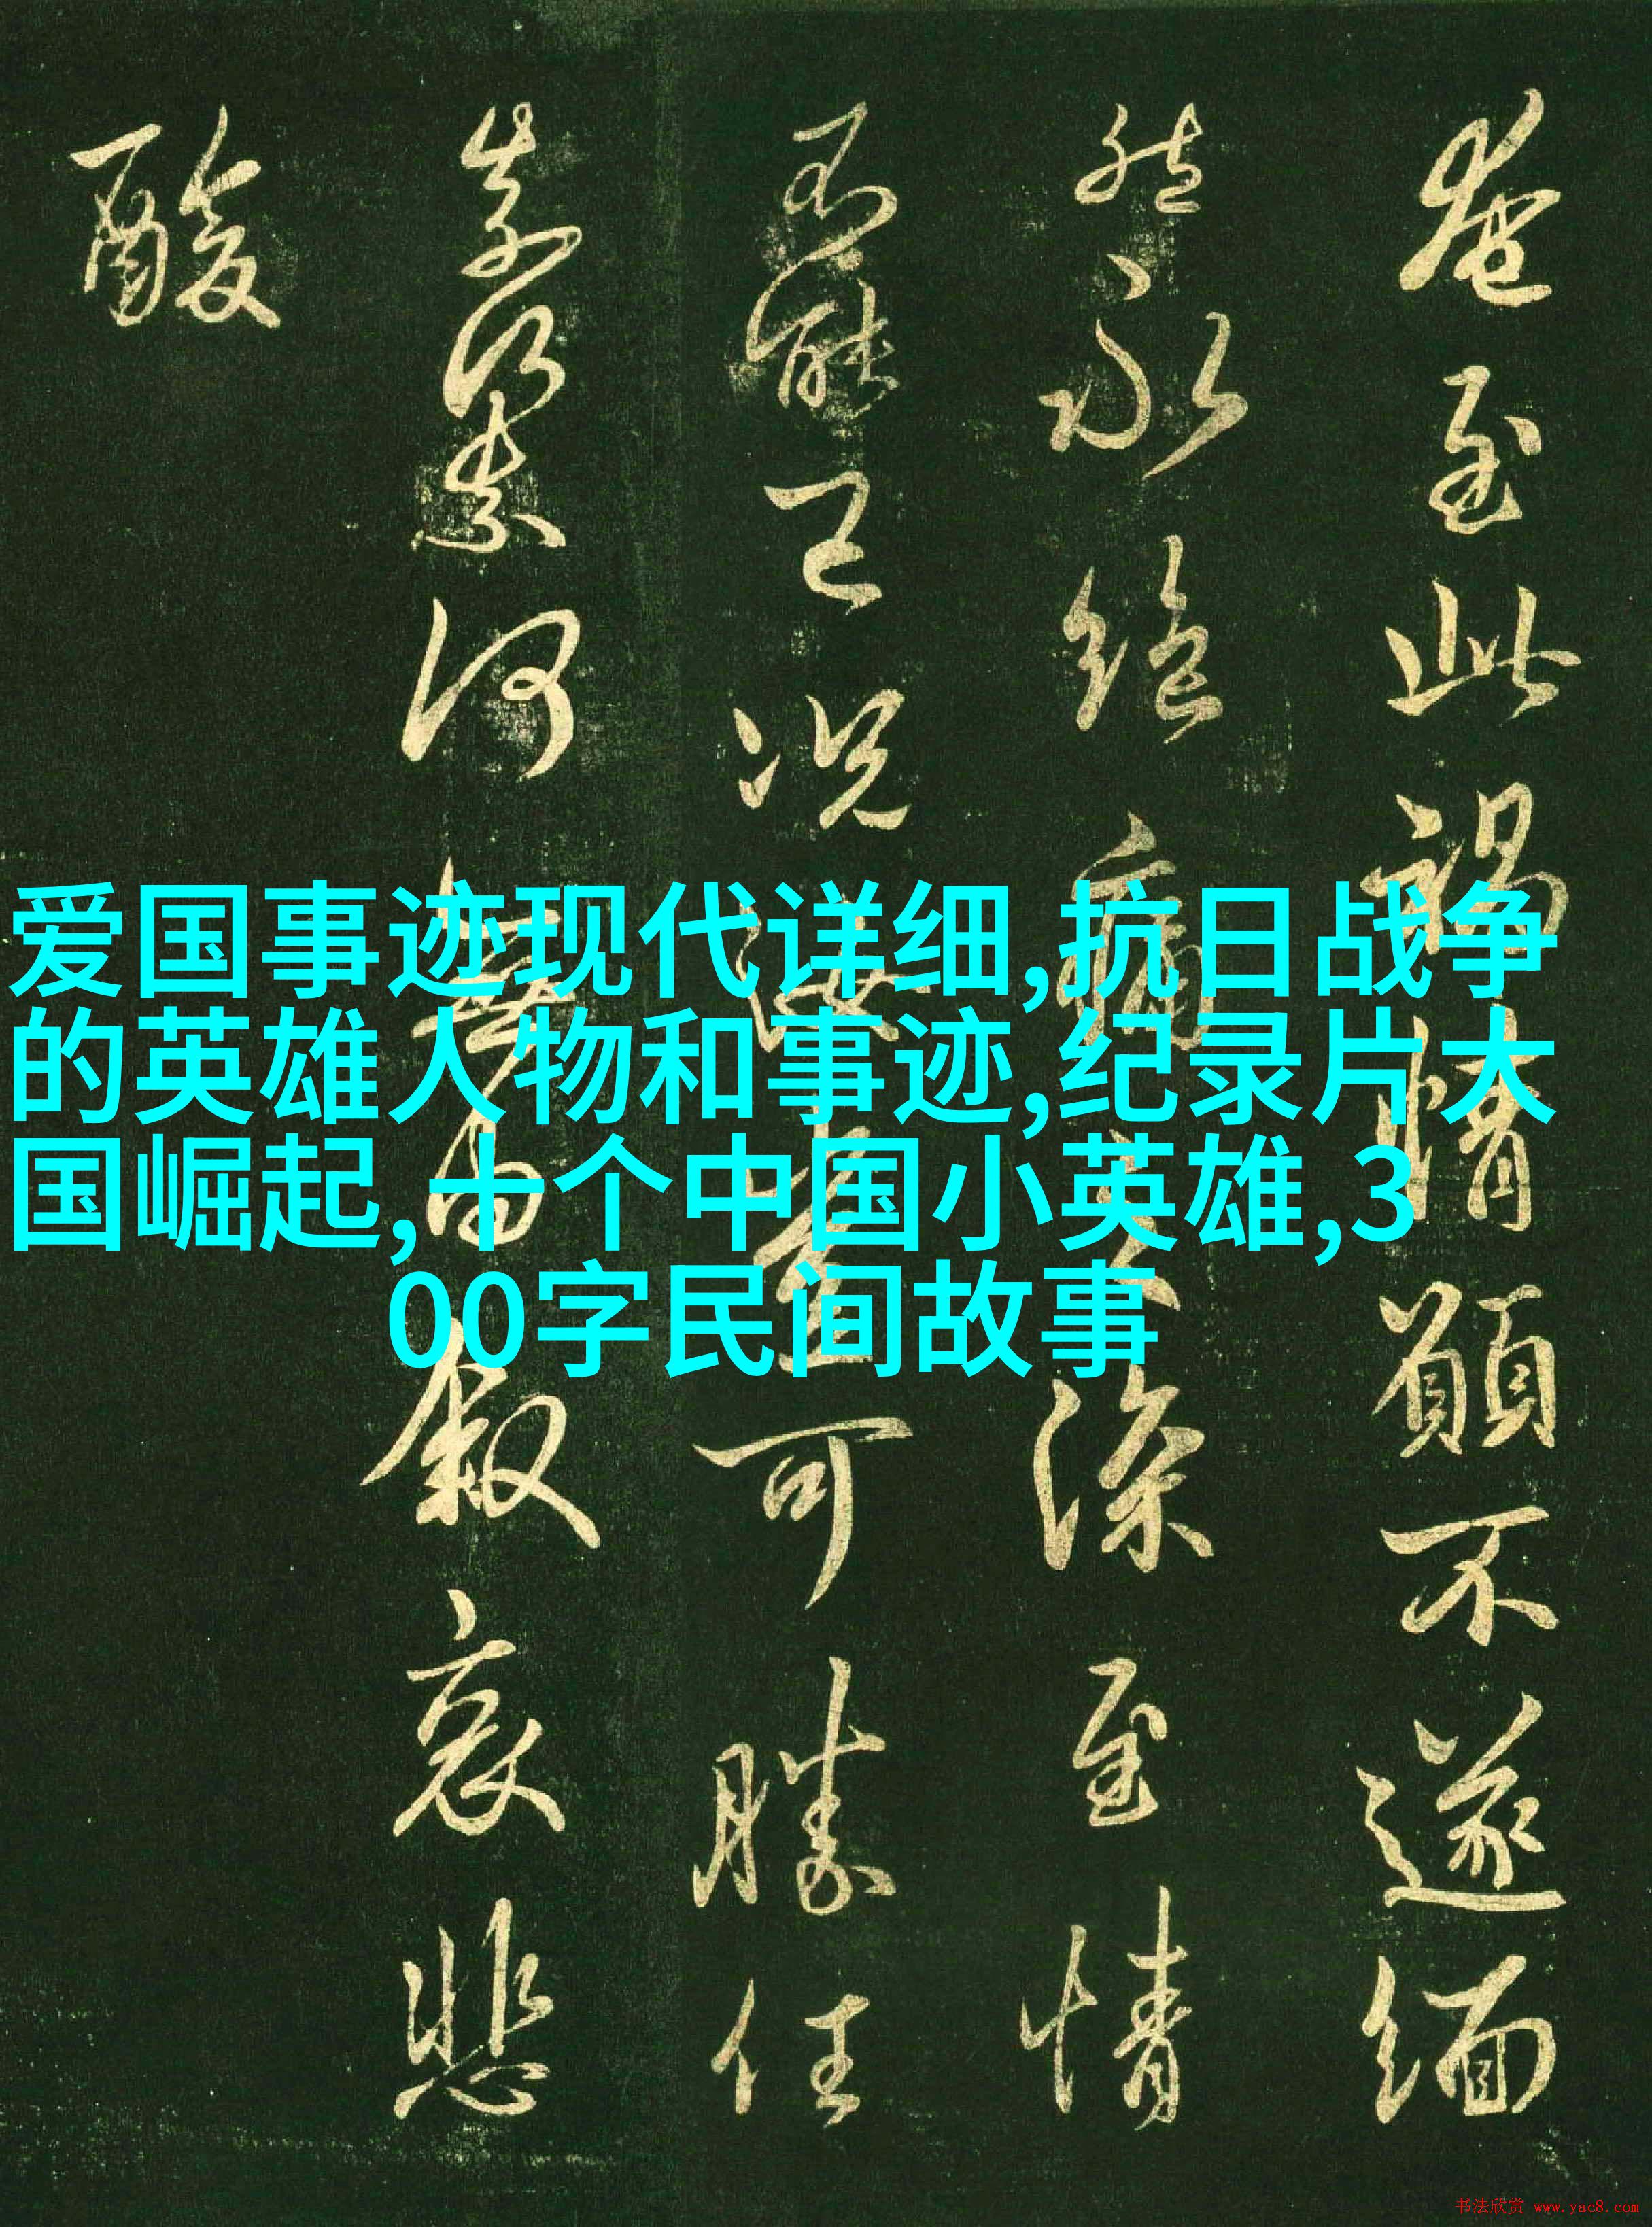 奄至此禍情願不遂緬
然永絕痛
深至情
不能已况
可勝任
奈何奈何
敘哀悲
酸
爱国事迹现代详细,抗日战争
的英雄人物和事迹,纪录片大
国崛起,十个中国小英雄,3
00字民间故事
书法欣赏 www.yac8.com